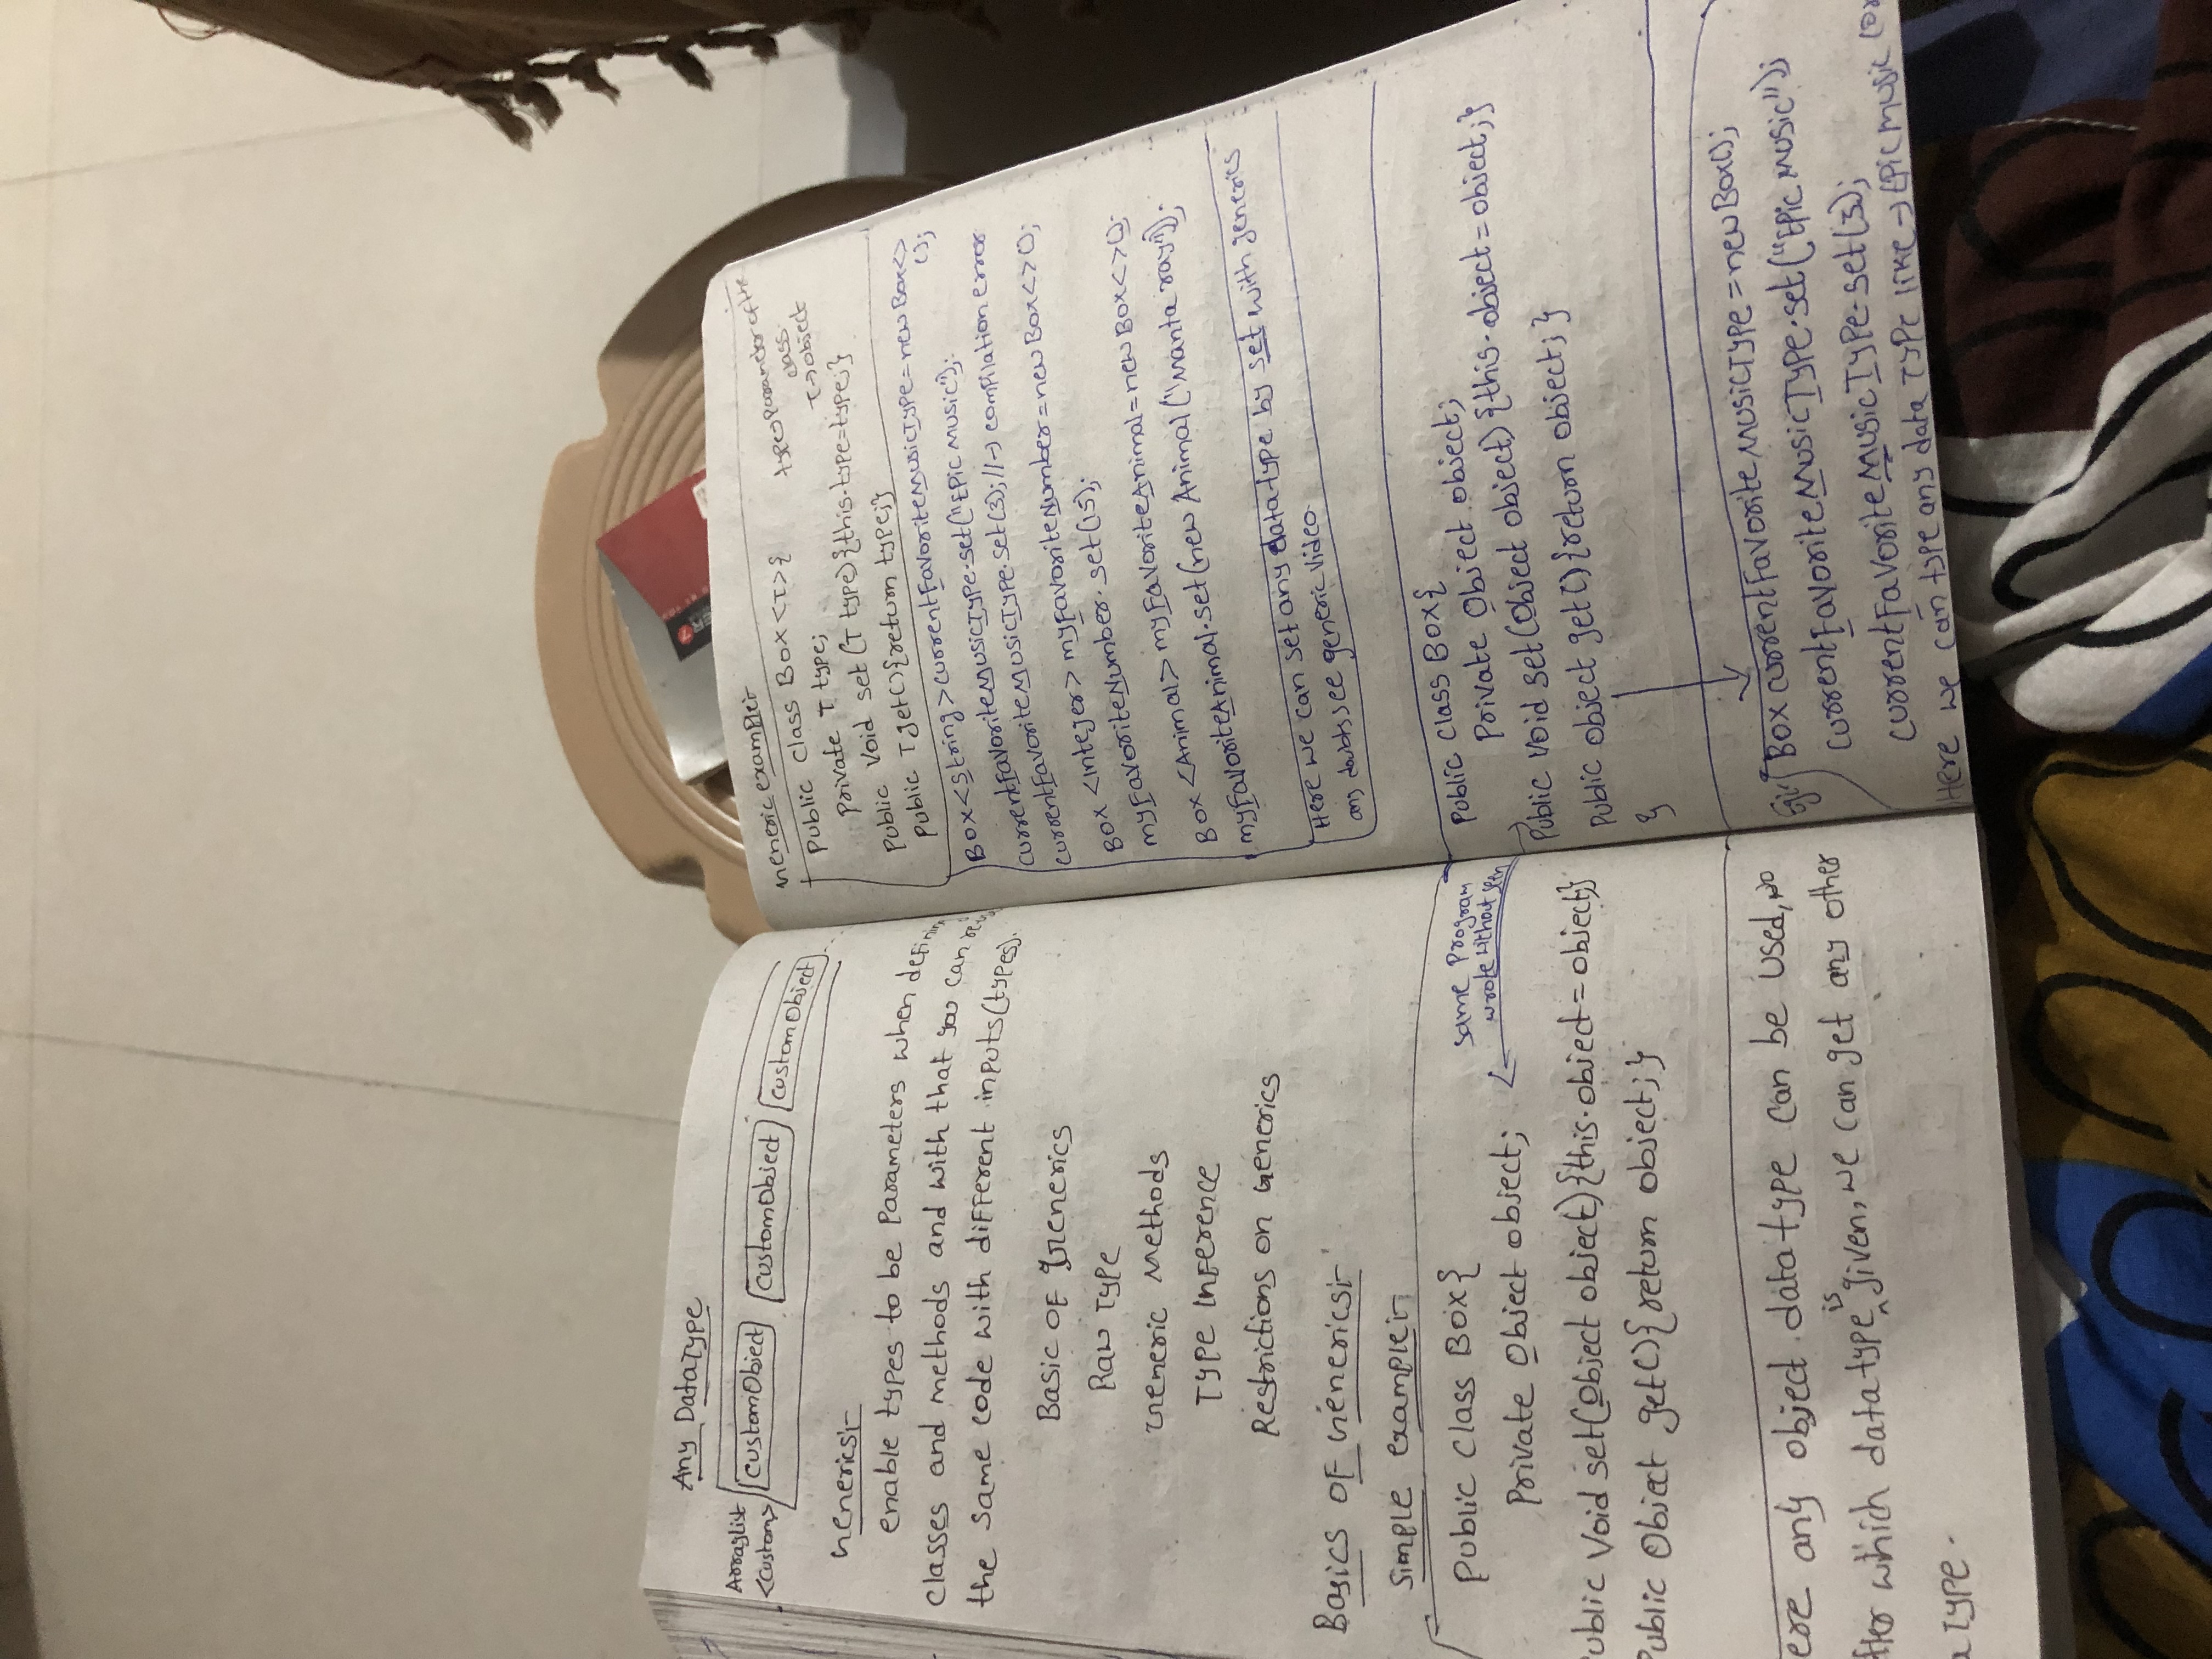 Any DataType
Arraylist
<Custom>
CustomObject
CustomObject
CustomObject
Generics:-
enable types to be Parameters when
classes and methods and with that you can
the same code with different inputs(types).
Basic OF Generics
Raw Type
Generic Methods
Type Inference
Restrictions on Generics
Basics OF Generics:-
Simple example:-
Public Class Box{
Private Object object;
same Program
wrote without seen
ublic Void set(Object object){this.object=object;}
Public Object get(){return object;}
ere any object datatype can be used, no
tter which datatype is given, we can get any other
a Type.
Generic example:-
Public Class Box<T>{
type→parameter of the
class
T→object
Private T type;
Public Void set(T type){this.type=type;}
Public T get(){return type;}
Box<String>currentFavoriteMusicType=new Box<>
();
currentFavoriteMusicType.set("Epic Music");
currentFavoriteMusicType.set(3);//→ compilation error
Box<Integer> myFavoriteNumber=new Box<>();
myFavoriteNumber.set(15);
Box<Animal> myFavoriteAnimal=new Box<>();
myFavoriteAnimal.set(new Animal("Manta ray"));
Here we can set any datatype by set with generics
any doubts see generic video
Public class Box{
Private Object object;
Public Void set(Object object){this.object=object;}
Public object get(){return object;}
}
Eg:-
Box currentFavoriteMusicType=new Box();
currentFavoriteMusicType.set("Epic Music");
currentFavoriteMusicType.set(3);
Here we can type any data Type like→Epic music (or